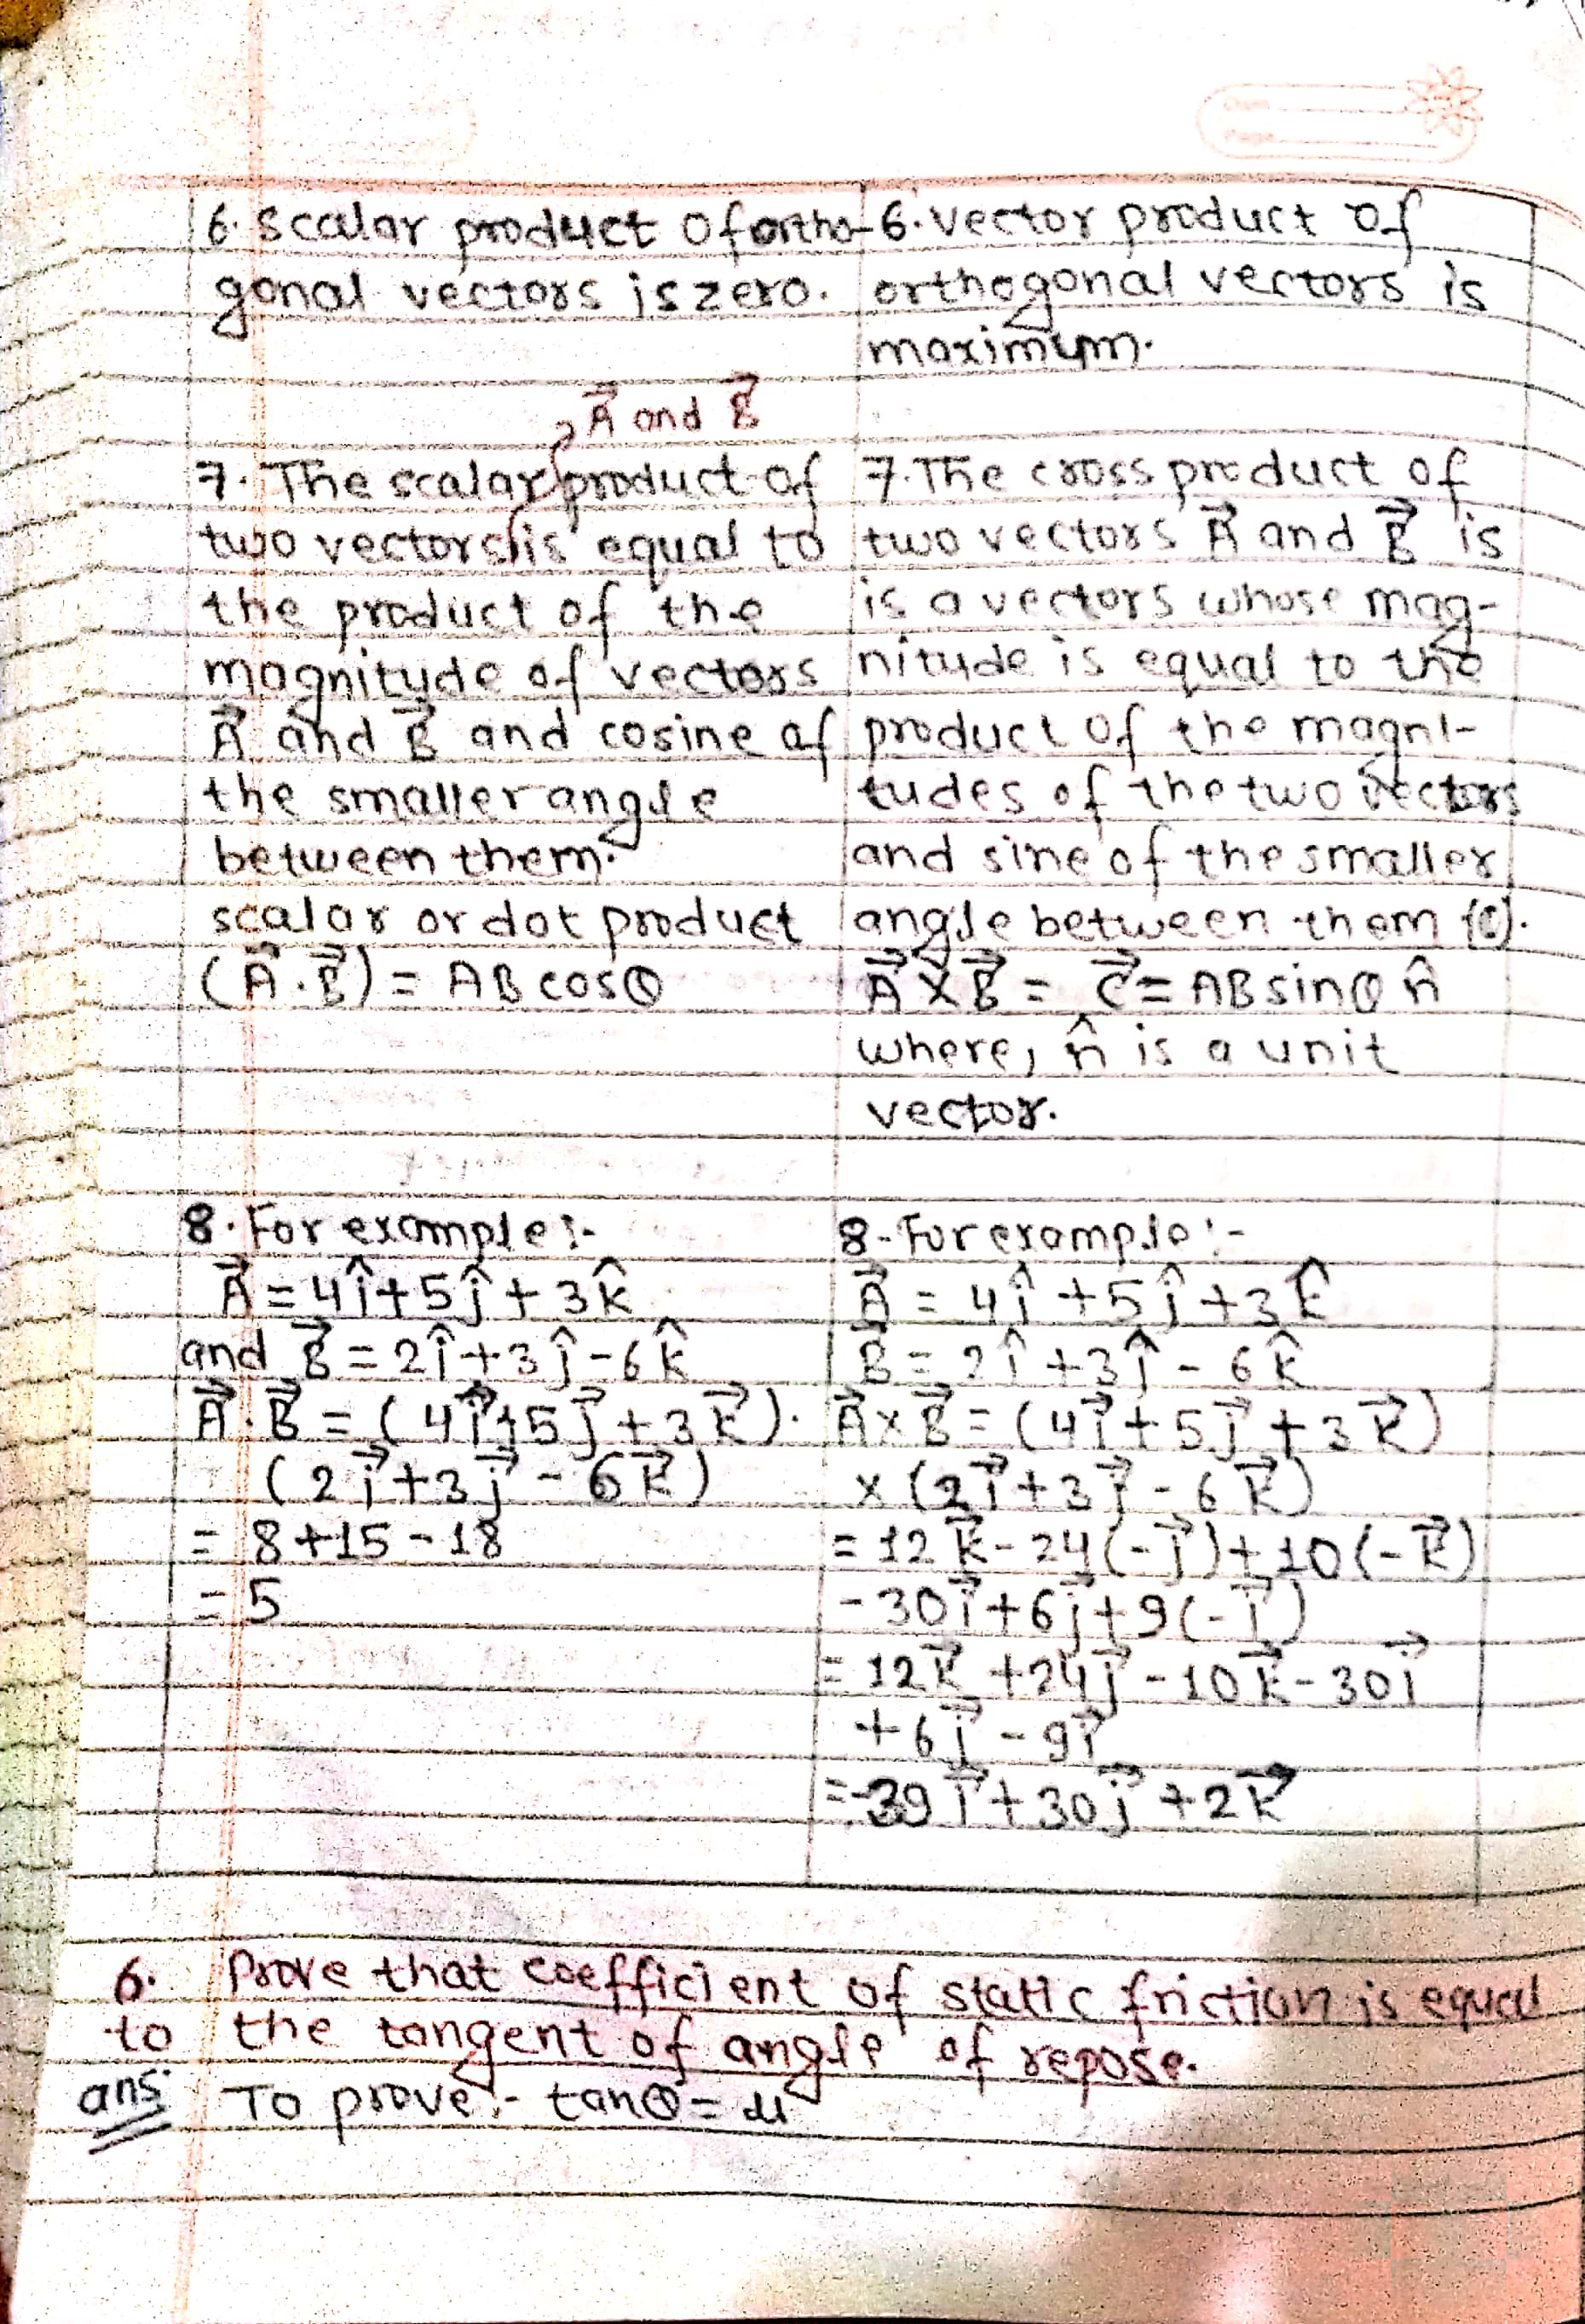 6. Scalar product of ortho-
gonal vectors is zero.
6. Vector product of
orthogonal vectors is
maximum.
A⃗ and B⃗
7. The scalar product of
two vectors is equal to
the product of the
magnitude of vectors
A⃗ and B⃗ and cosine of
the smaller angle
between them.
scalar or dot product
(A⃗.B⃗) = AB cosθ
7. The cross product of
two vectors A⃗ and B⃗ is
is a vectors whose mag-
nitude is equal to the
product of the magni-
tudes of the two vectors
and sine of the smaller
angle between them (θ).
A⃗ X B⃗ = C⃗ = AB sinθ n̂
where, n̂ is a unit
vector.
8. For example:-
A⃗ = 4î + 5ĵ + 3k̂
and B⃗ = 2î + 3ĵ - 6k̂
A⃗.B⃗ = (4i⃗ + 5j⃗ + 3k⃗).
(2i⃗ + 3j⃗ - 6k⃗)
= 8+15-18
= 5
8. For example:-
A⃗ = 4î + 5ĵ + 3k̂
B⃗ = 2î + 3ĵ - 6k̂
A⃗ x B⃗ = (4i⃗ + 5j⃗ + 3k⃗)
x (2i⃗ + 3j⃗ - 6k⃗)
= 12k⃗ - 24(-j⃗) + 10(-k⃗)
- 30i⃗ + 6j⃗ + 9(-i⃗)
= 12k⃗ + 24j⃗ - 10k⃗ - 30i⃗
+ 6j⃗ - 9i⃗
= -39i⃗ + 30j⃗ + 2k⃗
6. Prove that coefficient of static friction is equal
to the tangent of angle of repose.
ans: To prove:- tanθ = μ